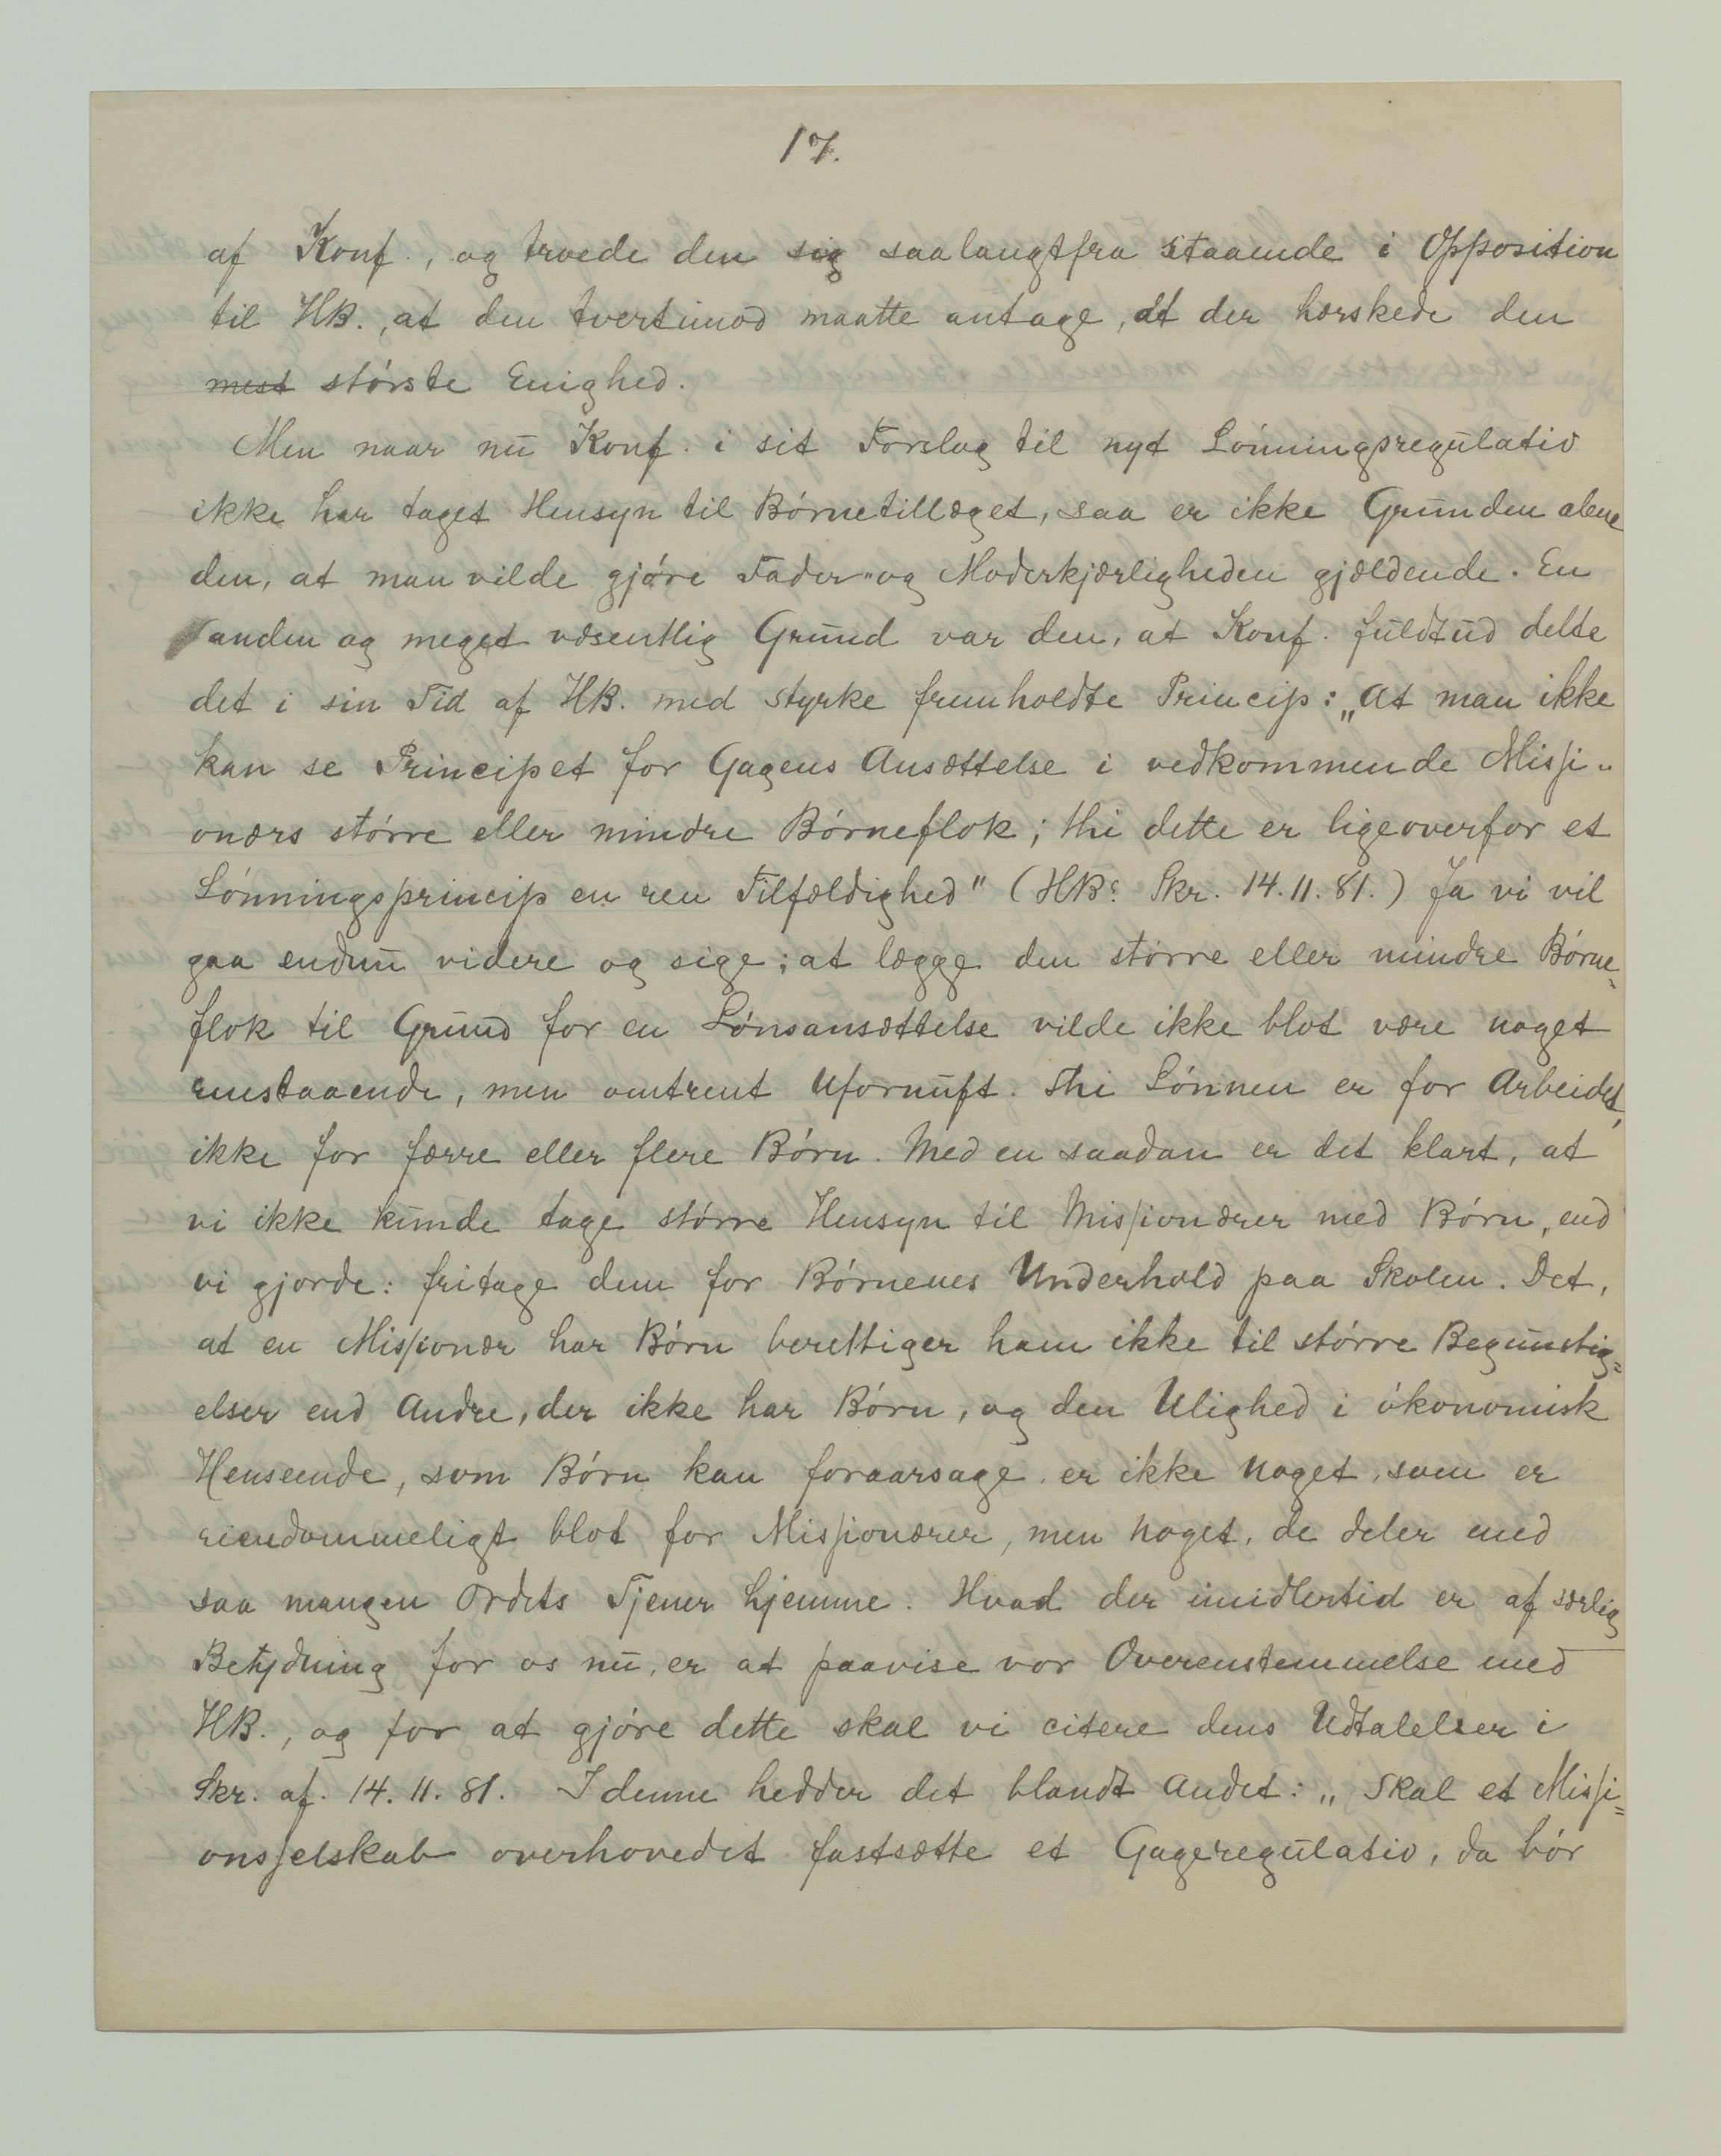 17.
af Konf., og troede den sig saalangtfra staaende i Opposition
til HB., at den tvertimod maatte antage, at der herskede den
mest største Enighed.
Men naar nu Konf. i sit Forslag til nyt Lønningsregulativ
ikke har taget Hensyn til Børnetillæget, saa er ikke Grunden alene
den, at man vilde gjøre Fader- og Moderkjærligheden gjældende. En
anden og meget væsentlig Grund var den, at Konf. fuldtud delte
det i sin Tid af HB. med Styrke fremholdte Princip: „At man ikke
kan se Principet for Gagens Ansættelse i vedkommende Missi-
onærs større eller mindre Børneflok; thi dette er ligeoverfor et
Lønningsprincip en ren Tilfældighed" (HBs Skr. 14.11.81.) Ja vi vil
gaa endnu videre og sige; at lægge den større eller mindre Børne-
flok til Grund for en Lønsansættelse vilde ikke blot være noget
enestaaende, men omtrent Ufornuft. Thi Lønnen er for Arbeidet,
ikke for færre eller flere Børn. Med en saadan er det klart, at
vi ikke kunde tage større Hensyn til Missionærer med Børn, end
vi gjorde: fritage dem for Børnenes Underhold paa Skolen. Det,
at en Missionær har Børn berettiger ham ikke til større Begunstig-
elser end Andre, der ikke har Børn, og den Ulighed i økonomisk
Henseende, som Børn kan foraarsage, er ikke Noget, som er
eiendommeligt blot for Missionærer, men Noget, de deler med
saa mangen Ordets Tjener hjemme. Hvad der imidlertid er af særlig
Betydning for os nu, er at paavise vor Overenstemmelse med
HB., og for at gjøre dette skal vi citere dens Udtalelser i
Skr. af. 14.11.81. I denne hedder det blandt Andet: „Skal et Missi-
onsselskab overhovedet fastsætte et Gageregulativ, da bør